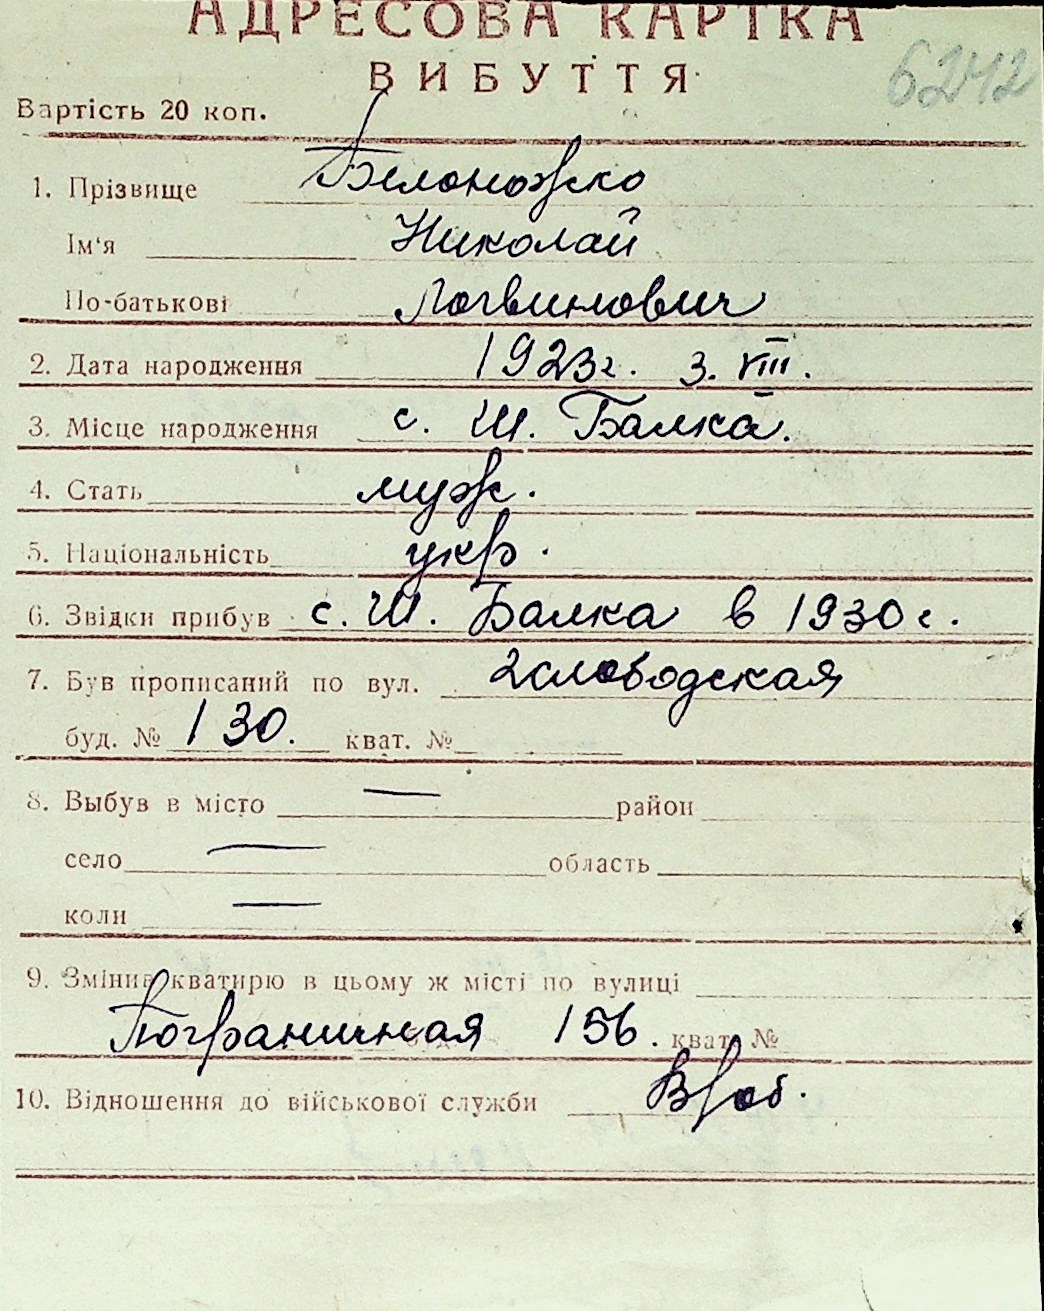 АДРЕСОВА КАРТКА
ВИБУТТЯ
6242
Вартість 20 коп.
1. Прізвище Белоножко
Ім'я Николай
По-батькові Логвинович
2. Дата народження 1923г. 3. VIII.
3. Місце народження с. Ш. Балка.
4. Стать муж.
5. Національність укр.
6. Звідки прибув с. Ш. Балка в 1930 г.
7. Був прописаний по вул. 2 слободская
буд. № 130. кват. №
8. Выбув в місто — район
село — область
коли —
9. Змінив кватирю в цьому ж місті по вулиці
Пограничная 156. кват. №
10. Відношення до військової служби